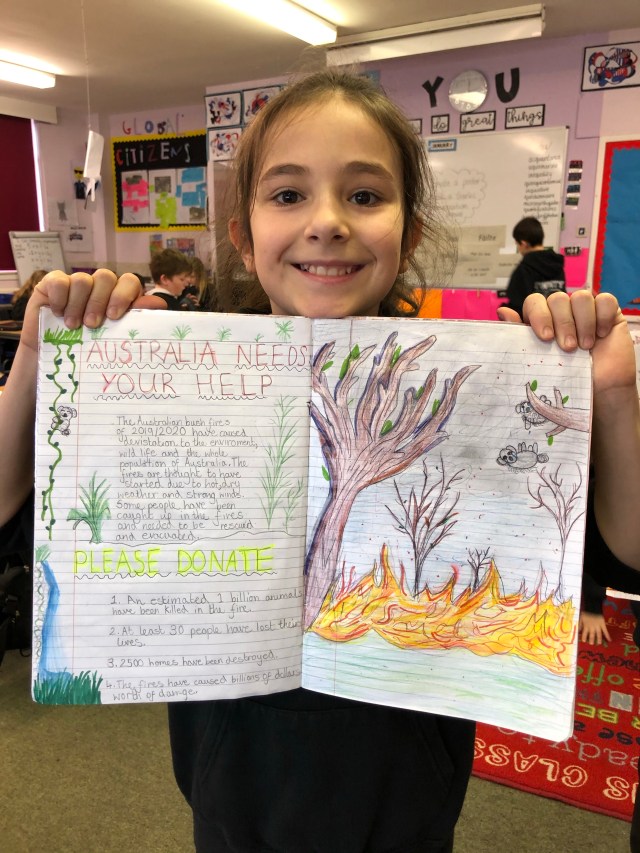 YOU
do great things
GLOBAL
CITIZENS
AUSTRALIA NEEDS
YOUR HELP
The Australian bush fires
of 2019/2020 have caused
devistation to the enviroment,
wild life and the whole
population of Australia. The
fires are thought to have
started due to hot, dry
weather and strong winds.
Some people have been
caught up in the fires
and needed to be rescued
and evacuated.
PLEASE DONATE
1. An estimated 1 billion animals
have been killed in the fire.
2. At least 30 people have lost their
lives.
3. 2500 homes have been destroyed.
4. The fires have caused billions of dollars
worth of damage.
CLASS